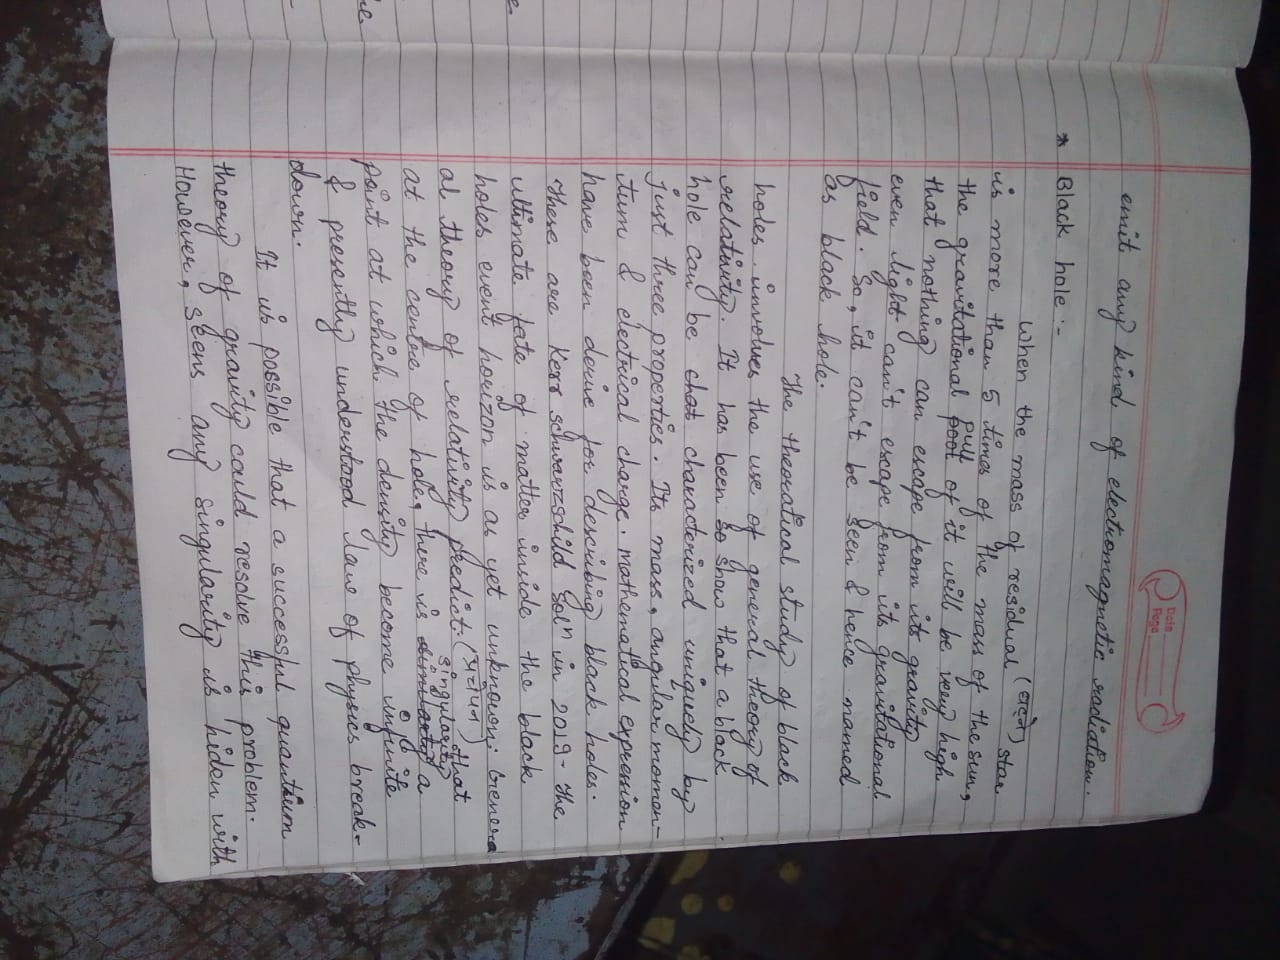 Date
Page
emit any kind of electromagnetic radiation.
* Black hole :-
when the mass of residual star
is more than 5 times of the mass of the sun,
the gravitational pull of it will be very high
that nothing can escape from its gravity
even light can't escape from its gravitational
field. So, it can't be seen & hence named
as black hole.
The theoratical study of black
holes involves the use of general theory of
relativity. It has been so show that a black
hole can be chat characterized uniquely by
just three properties. Its mass, angular momen-
tum & electrical charge. mathematical expression
have been derive for describing black holes.
There are Kerr schwarzschild solⁿ in 2019 - the
ultimate fate of matter inside the black
holes event horizon is as yet unknown. Genera
al theory of relativity predict. that
at the centre of hole, there is singularity a
point at which the density become infinite
& presently understood law of physics break-
down.
It is possible that a successful quantum
theory of gravity could resolve this problem.
However, seens any singularity is hiden with